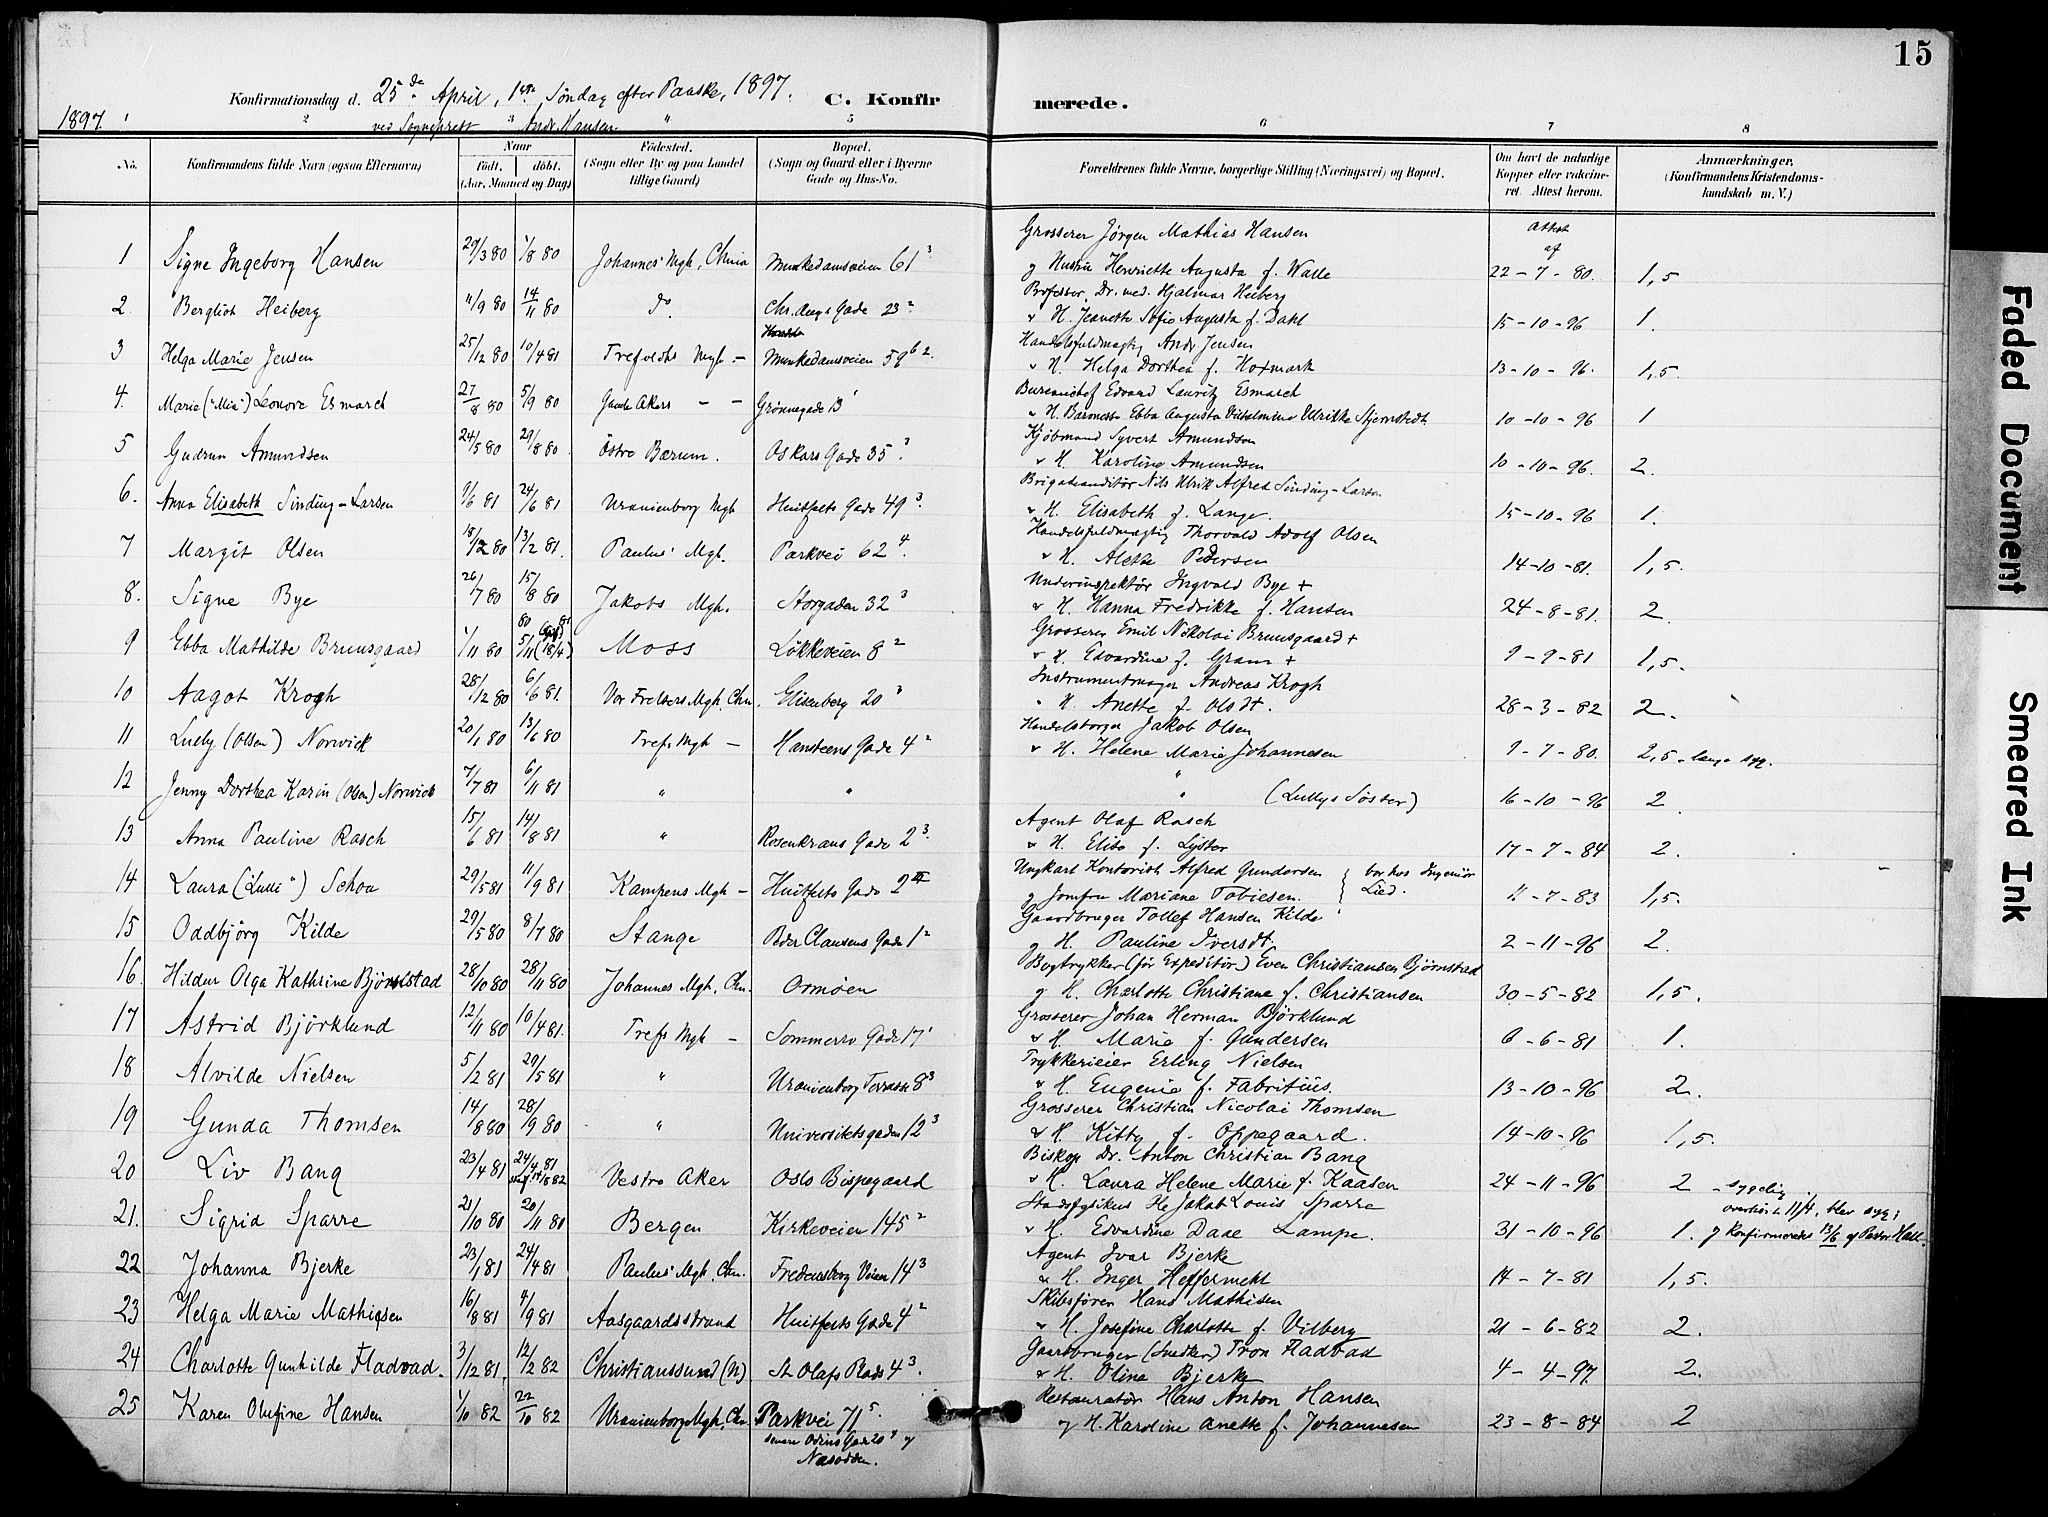 15
Konfirmationsdag d. 25de April, 1ste Søndag efter Paaske, 1897. C. Konfirmerede.
1897. ved Sogneprest Andr. Hansen
1 2 3 " 5 6 7 8
No. Konfirmandens fulde Navn (ogsaa Efternavn) Naar født, døbt. (Aar, Maaned og Dag) Fødested. (Sogn eller By og paa Landet tillige Gaard) Bopæl. (Sogn og Gaard eller i Byerne Gade og Hus-No. Forældrenes fulde Navne, borgerlige Stilling (Næringsvei) og Bopæl. Om havt de naturlige Kopper eller vakcineret. Attest herom. Anmærkninger, (Konfirmandens Kristendomskundskab m. V.)
Grosserer Jørgen Mathias Hansen attest af
1 Signe Ingeborg Hansen 29/3 80 1/8 80 Johannes' Mgh, Chnia Munkedamsveien 61 3 og Hustru Henriette Augusta f. Walle 22-7-80. 1,5
Professor, Dr. med. Hjalmar Heiberg
2. Bergliot Heiberg 11/9 80 14/11 80 do. Chr. Augs Gade 23 2 " H. Jeanette Sofie Augusta f. Dahl 15-10-96 1.
Handelsfuldmægtig Andr. Jensen
3 Helga Marie Jensen 25/12 80 10/4 81 Trefoldts Mgh. - Munkedamsveien 59 b 2. " H. Helga Dorthea f. Hoxmark 13-10-96. 1,5.
Bureauchef Edvard Lauritz Esmarch
4. Marie ("Mia") Leonore Esmarch 27/8 80 5/9 80 Gamle Akers - - Grønnegade 13 1 " H. Baronesse Ebba Augusta Vilhelmina Ulrikke Stjernstedt 10-10-96 1
Kjøbmand Syvert Amundsen
5 Gudrun Amundsen 24/5 80 29/8 80. Østre Bærum. Oskars Gade 35 3 " H. Karoline Amundsen 10-10-96. 2.
Brigadeauditør Nils Ulrik Alfred Sinding-Larsen
6. Anna Elisabeth Sinding-Larsen 1/6 81 24/6 81 Uranienborg Mgh Huitfelts Gade 49 3. " H. Elisabeth f. Lange. 15-10-96 1.
Handelsfuldmægtig Thorvald Adolf Olsen
7 Margit Olsen 18/12 80 13/2 81. Paulus' Mgh. Parkvei 62 4. " H. Alette Pedersen 14-10-81. 1,5.
Underinspektør Ingvald Bye +
8. Signe Bye 26/7 80 15/8 80 Jakobs Mgh. Storgaden 32 3 " H. Hanna Fredrikke f. Hansen 24-8-81. 2.
Grosserer Emil Nikolai Bruusgaard +
9 Ebba Mathilde Bruusgaard 1/11 80 5/11 (18/4) Moss Løkkeveien 8 2 " H. Edvardine f. Gram + 9-9-81 1,5.
Instrumentmager Andreas Krogh
10 Aagot Krogh 28/12 80 6/6 81. Vor Frelsers Mgh, Chn. Elisenberg 20 3 " H. Anette f. Olsdt. 28-3-82 2.
Handelsborger Jakob Olsen
11 Lully (Olsen) Norwick 20/1 80 13/6 80 Trefs Mgh - Hansteens Gade 4 2 " H. Helene Marie Johannesen 9-7-80. 2,5 - længe syg.
12 Jenny Dorthea Karin (Olsen) Norwick 7/7 81 6/11 81 " " " (Lullys Søster) 16-10-96 2.
Agent Olaf Rasch
13 Anna Pauline Rasch 15/6 81 14/8 81 " Rosenkrans Gade 2 3. " H. Elise f. Lyster 17-7-84 2.
Ungkarl Kontorist Alfred Gundersen } bor hos Ingeniør Lied.
14 Laura ("Lulli") Schou 29/5 81 11/9 81 Kampens Mgh - Huitfelts Gade 2 II og Jomfru Mariane Tobiesen. 11-7-83 1,5.
Gaardbruger Tollef Hansen Kilde
15 Oddbjørg Kilde 29/5 80 8/7 80 Stange Peder Clausens Gade 1 2 og H. Pauline Iversdt. 2-11-96 2.
Bogtrykker (før Expeditør) Even Christiansen Bjørnstad
16. Hildur Olga Kathrine Bjørnstad 28/10 80 28/11 80 Johannes Mgh, Chn. Ormøen og H. Charlotte Christiane f. Christiansen 30-5-82 1,5.
Grosserer Johan Herman Bjørklund
17 Astrid Bjørklund 12/11 80 10/4 81. Trefs Mgh - Sommerro Gade 17 1 " H. Marie f. Gundersen 6-6-81 1.
Trykkerieier Erling Nielsen
18 Alvilde Nielsen 5/2 81 29/5 81 " Uranienborg Terrasse 8 3 " H. Eugenie f. Fabritius. 13-10-96 2.
Grosserer Christian Nicolai Thomsen
19 Gunda Thomsen 14/8 80 28/9 80 " Universitetsgaden 12 3 " H. Kitty f. Oppegaard. 14-10-96 1,5.
Biskop Dr. Anton Christian Bang
20 Liv Bang 23/4 81 24/4 81 14/8 82 Vestre Aker Oslo Bispegaard " H. Laura Helene Marie f. Kaasen 24-11-96 2 - sygelig
Stadsfysikus Ole Jakob Louis Sparre overhørt 11/4, blev syg;
21. Sigrid Sparre 21/10 80 20/11 80 Bergen Kirkeveien 145 2 " H. Edvardine Daae Lampe. 31-10-96 1. og konfirmeredes 13/6 af Pastor Hall.
Agent Ivar Bjerke
22 Johanna Bjerke 23/1 81 24/4 81 Paulus' Mgh, Chn. Fredensborg Veien 14 3 " H. Inger Heffermehl 14-7-81 1,5.
Skibsfører Hans Mathisen
23 Helga Marie Mathisen 16/8 81 4/9 81 Aasgaardsstrand Huitfelts Gade 4 2 " H. Josefine Charlotte f. Vilberg 21-6-82 2.
Gaardbruger (Snedker) Tron Fladvad
24 Charlotte Gunhilde Fladvad. 3/12 81. 12/2 82 Christianssund (N). St. Olafs Plads 4 3. " H. Olina Bjerke 4-4-97. 2.
Restauratør Hans Anton Hansen
25 Karen Olufine Hansen 1/10 82 22/10 82 Uranienborg Mgh, Chn. Parkvei 71 5. og H. Karoline Anette f. Johannesen 23-8-84 2
senere Odins Gade 20 4 og
Næsodden.
Faded Document
Smeared Ink